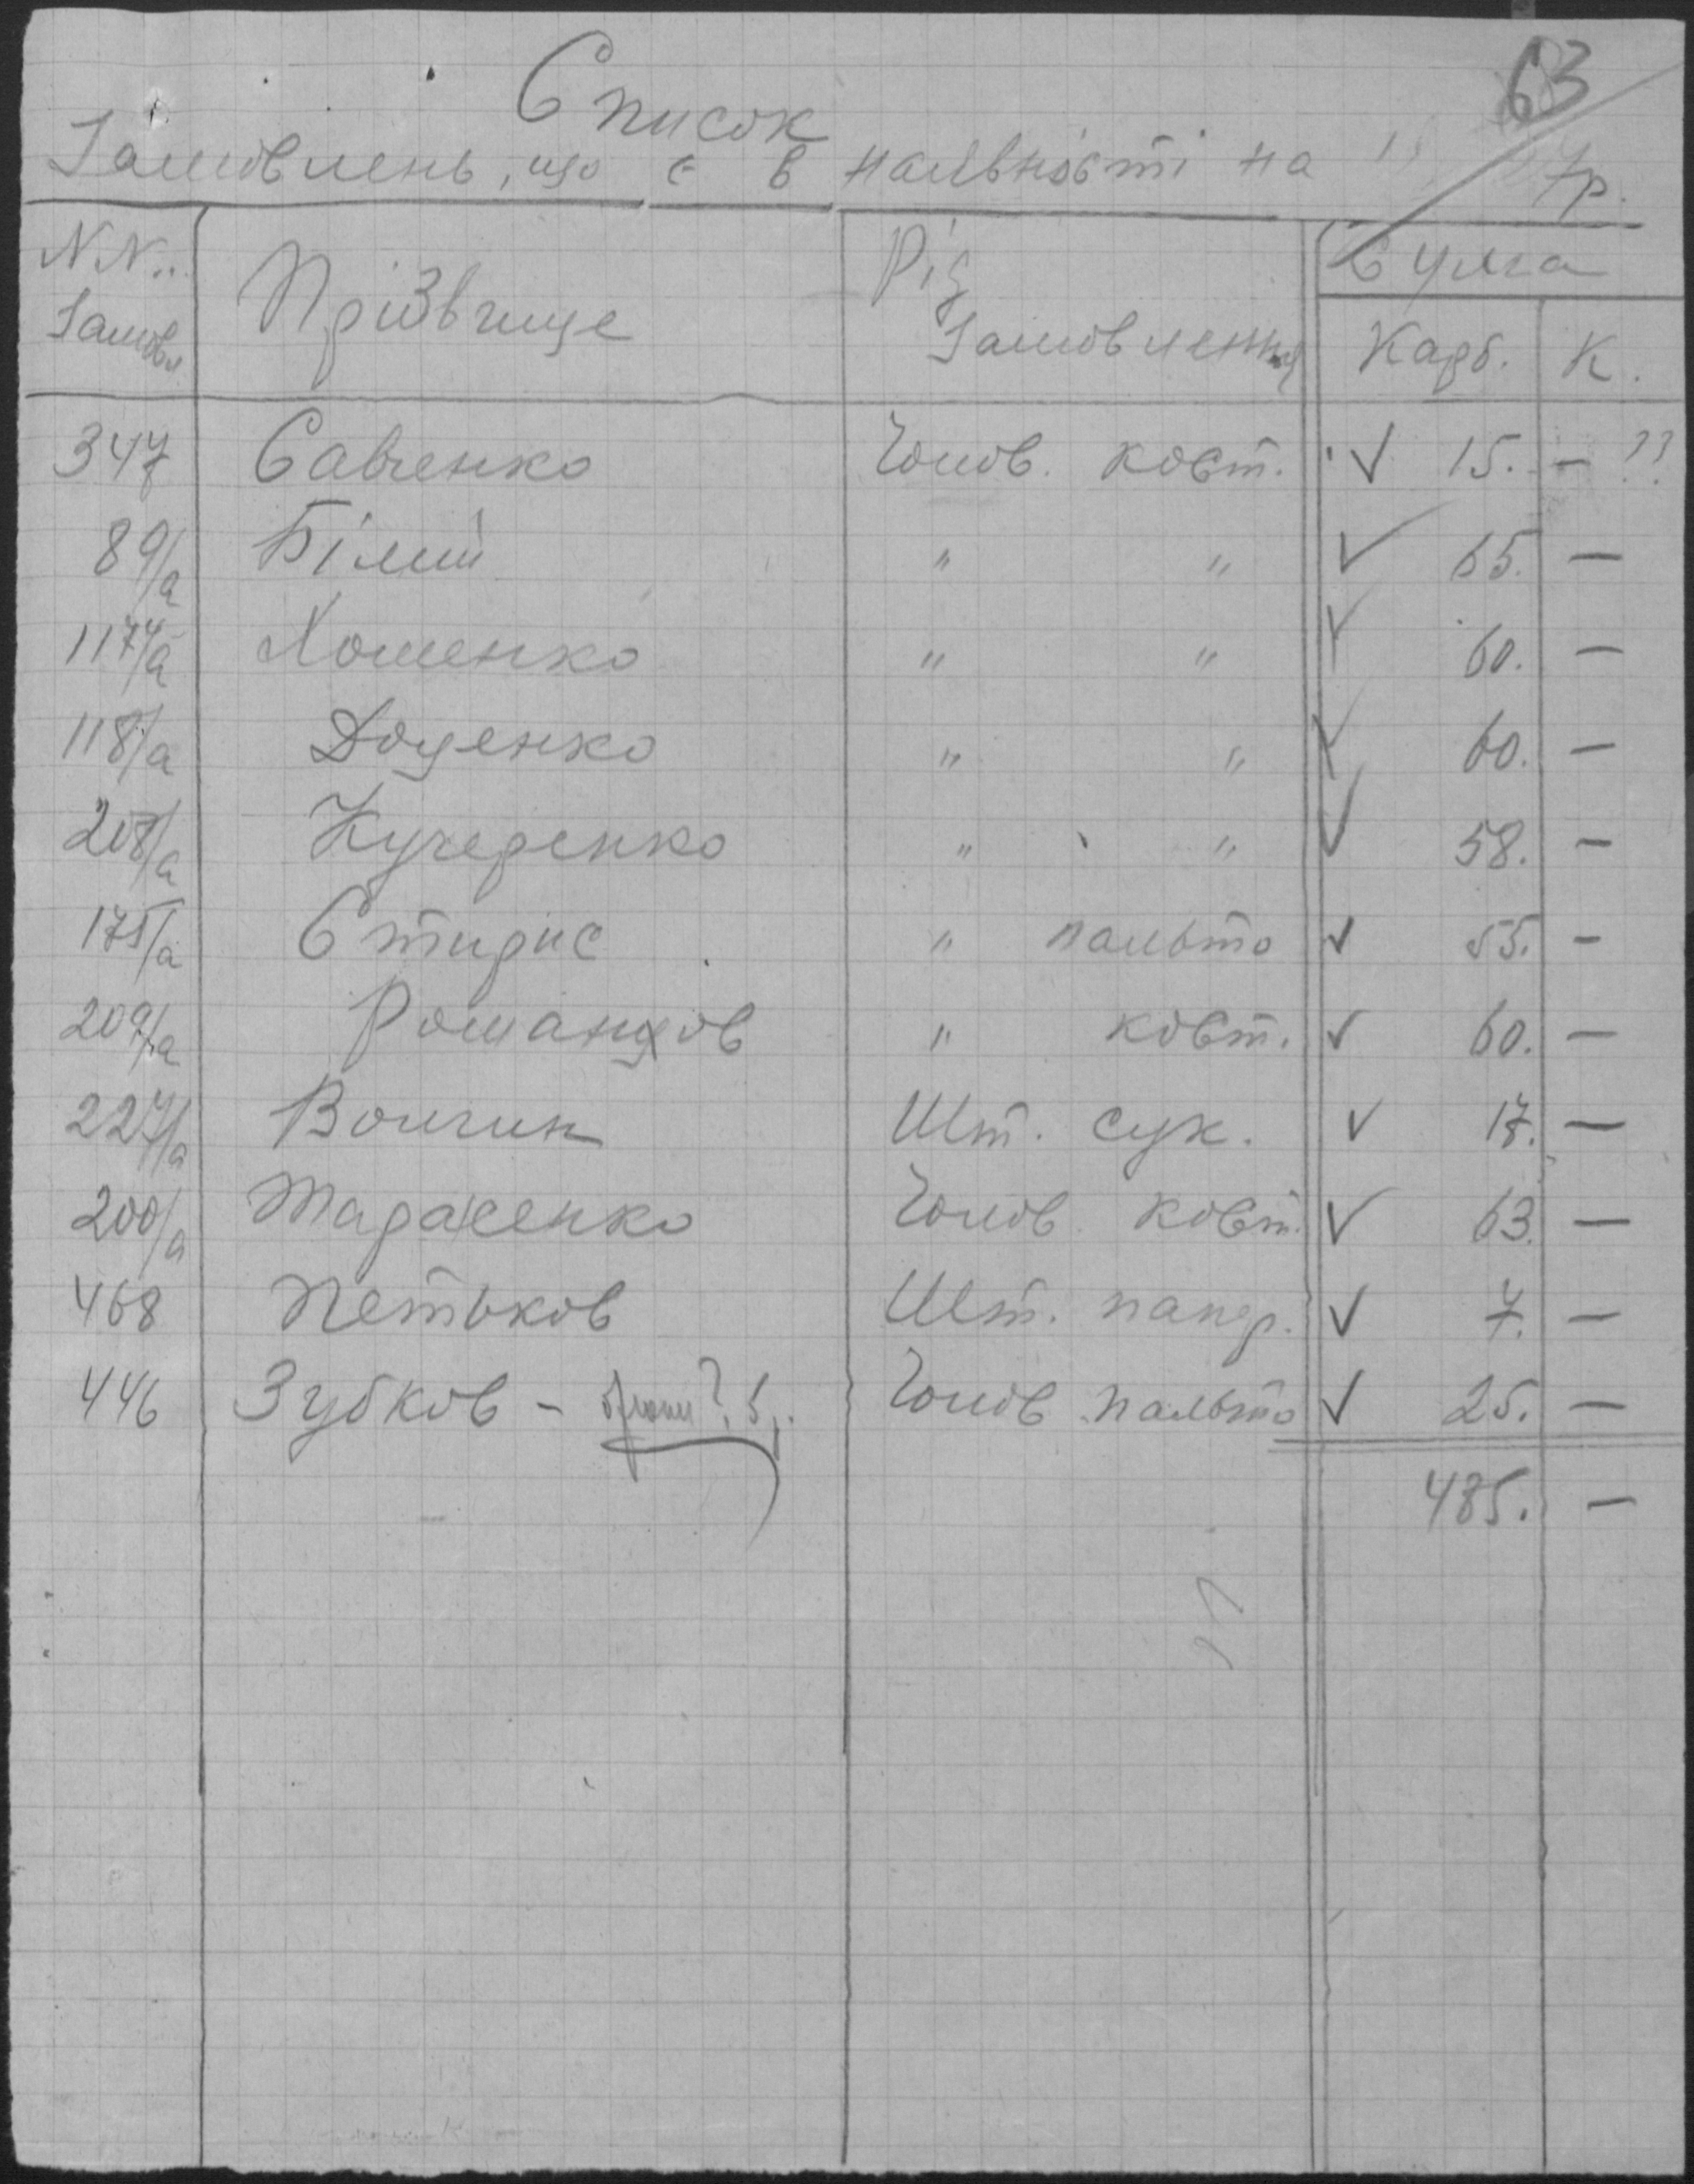 63
Список
Замовлень, що є в наявності на
р.
NN..
Замовл.
Прізвище
Рід
Замовлення
Сума
Карб. К.
347 Савченко Чолов. кост. ✓ 15. – ??
89/а Білий " " ✓ 65. –
117/а Хоменко " " ✓ 60. –
118/а Доценко " " ✓ 60. –
208/а Кучеренко " " ✓ 58. –
175/а " пальто ✓ 55. –
209/а Романов " кост. ✓ 60. –
227/а Волчин Шт. сук. ✓ 17. –
200/а Тарасенко Чолов. кост. ✓ 63. –
468 Петьков Шт. ✓ 7. –
446 Зубков – Чолов пальто ✓ 25. –
485. –